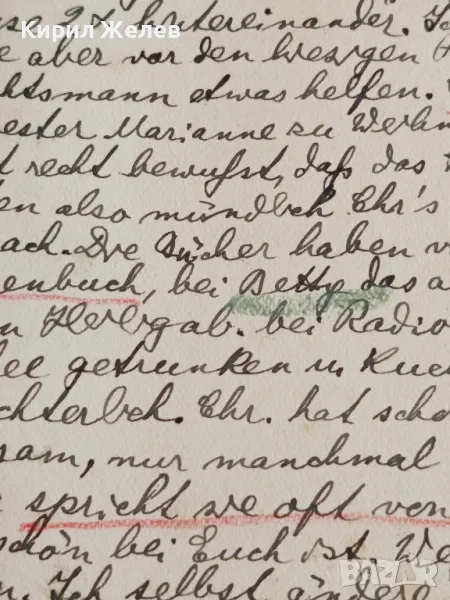 Кирил Желев
hintereinander. Ic
e aber vor den wenigen
chtsmann etwas helfen.
ester Marianne zu Weihn
t recht bewußt, daß das
en also mündlich Ehr's
ach. Die Bücher haben
enbuch, bei Betty das a
n Herbgab. bei Radio
ee getrunken u. Kuc
chterbch. Ehr. hat scho
sam, nur manchmal
spricht we oft von
schön bei Euch ist. We
n. Ich selbst ändere
bazar